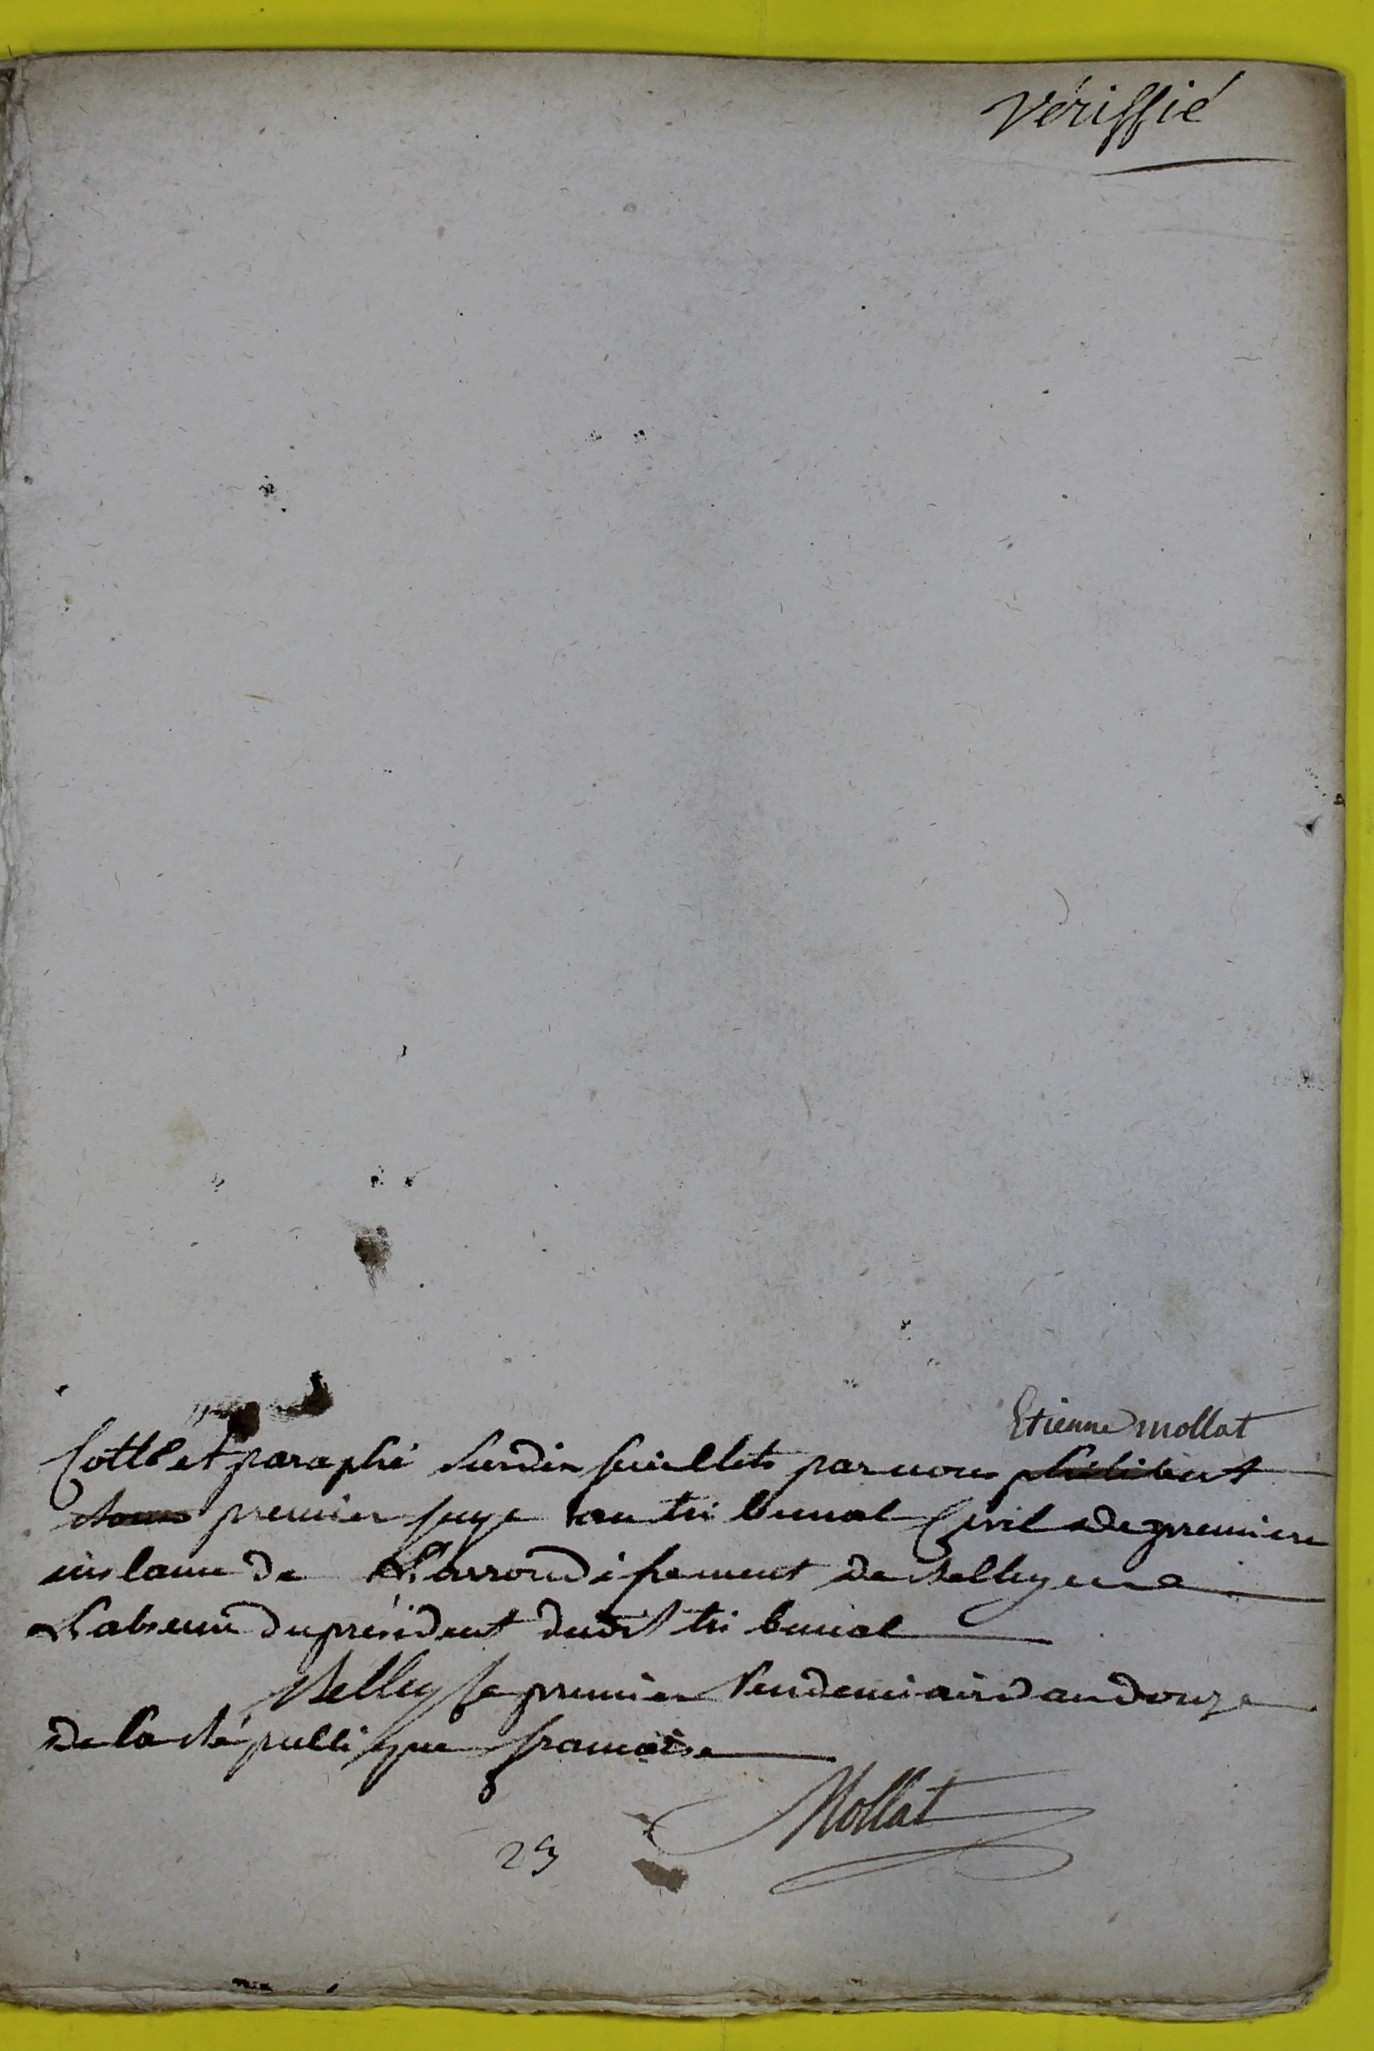 vériffié
Etienne mollat
Cotté et paraphé sur dix feuillets par nous philibert
premier juge au tribunal Civil de premiere
instance de l'arrondissement de Belley en
l'absence du président dudit tribunal
Belley le premier Vendemiaire an douze
de la République francaise
Mollat